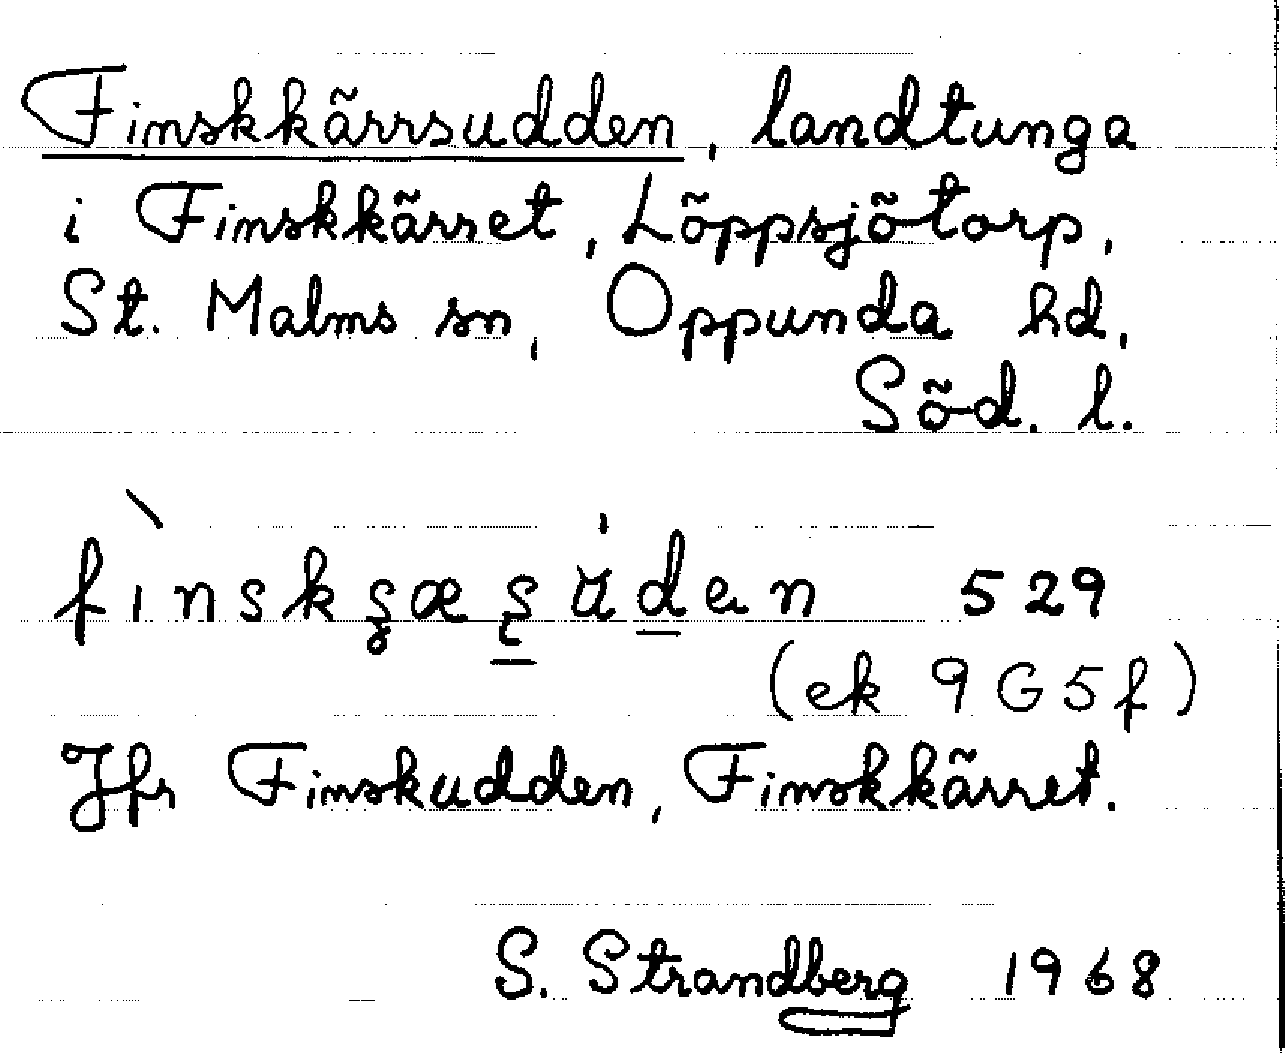 Finskkärrsudden, landtunga
i Finskkärret, Löppsjötorp,
St. Malms sn, Oppunda hd,
Söd. l.
529
(ek 9G5f)
Jfr Finskudden, Finskkärret.
S. Strandberg 1968